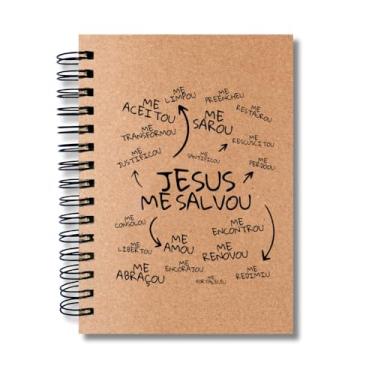 ME LIMPOU
ME PREENCHEU
ME ACEITOU
ME RESTAUROU
ME SAROU
ME TRANSFORMOU
ME RESSUSCITOU
ME JUSTIFICOU
ME SANTIFICOU
ME PERDOOU
JESUS
ME SALVOU
ME CONSOLOU
ME ENCONTROU
ME LIBERTOU
ME AMOU
ME RENOVOU
ME ENCORAJOU
ME REDIMIU
ME ABRAÇOU
ME FORTALECEU